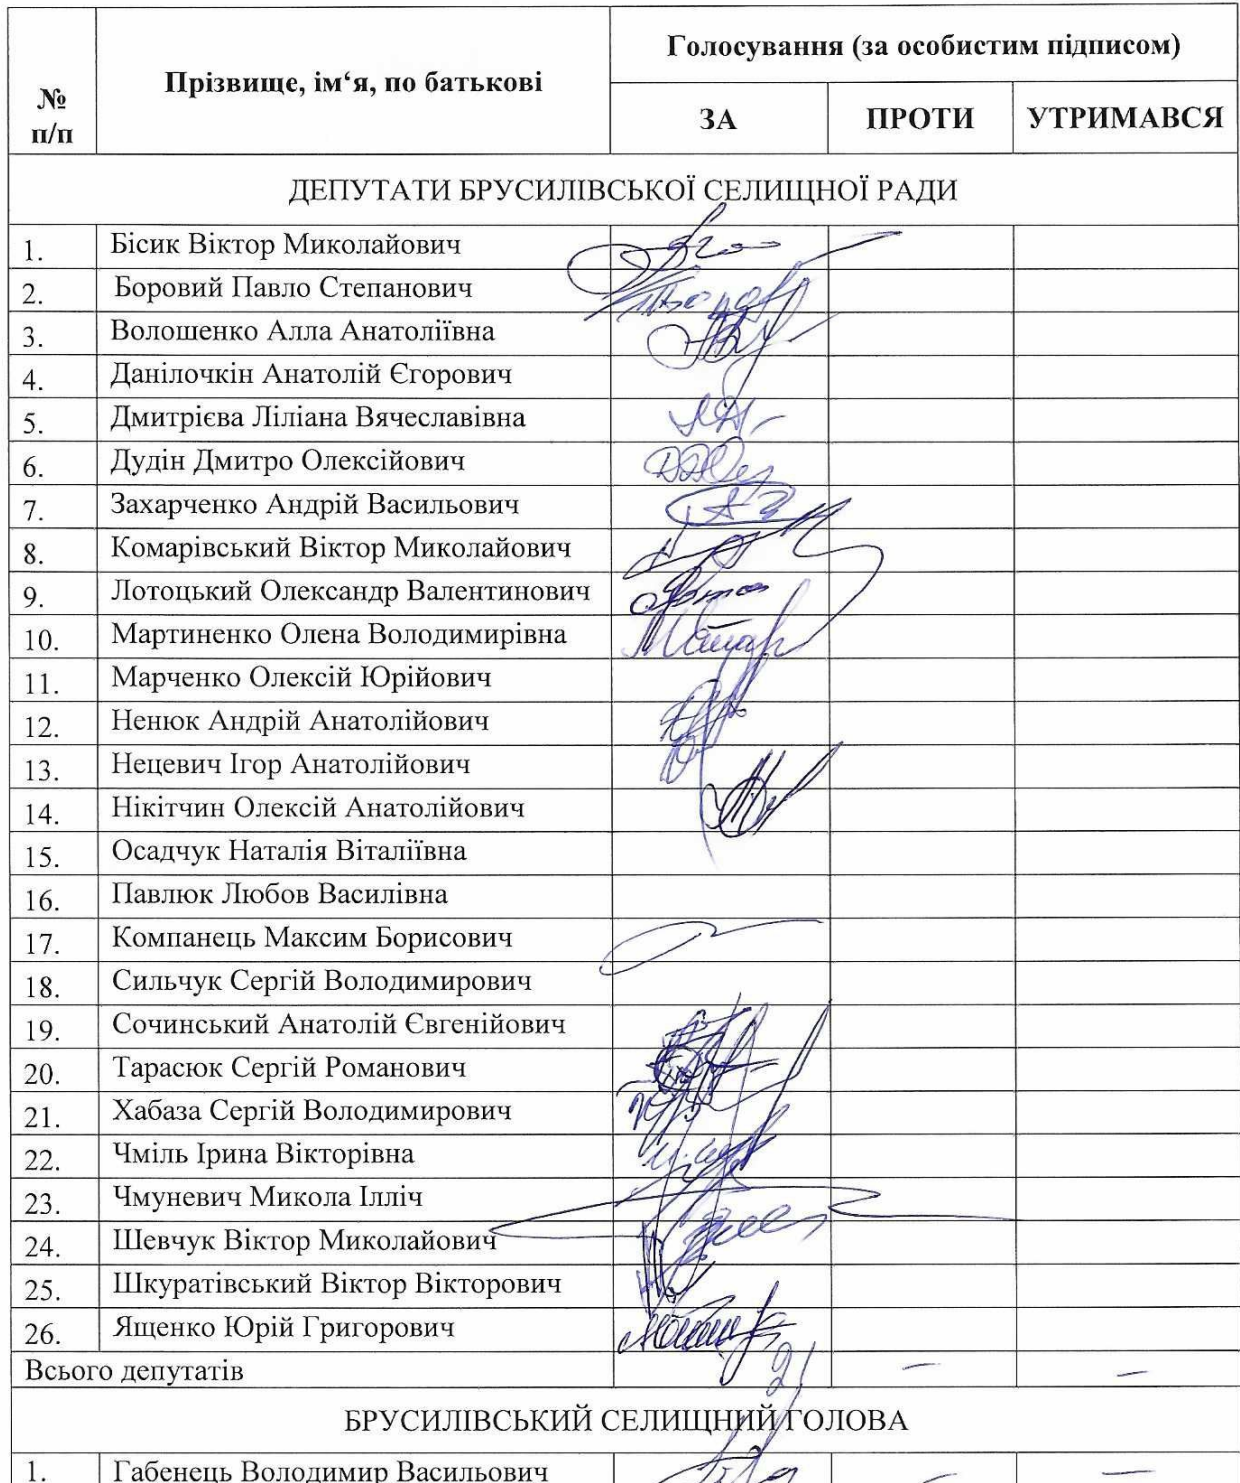 № п/п
Прізвище, ім‘я, по батькові
Голосування (за особистим підписом)
ЗА ПРОТИ УТРИМАВСЯ
ДЕПУТАТИ БРУСИЛІВСЬКОЇ СЕЛИЩНОЇ РАДИ
1. Бісик Віктор Миколайович
2. Боровий Павло Степанович
3. Волошенко Алла Анатоліївна
4. Данілочкін Анатолій Єгорович
5. Дмитрієва Ліліана Вячеславівна
6. Дудін Дмитро Олексійович
7. Захарченко Андрій Васильович
8. Комарівський Віктор Миколайович
9. Лотоцький Олександр Валентинович
10. Мартиненко Олена Володимирівна
11. Марченко Олексій Юрійович
12. Ненюк Андрій Анатолійович
13. Нецевич Ігор Анатолійович
14. Нікітчин Олексій Анатолійович
15. Осадчук Наталія Віталіївна
16. Павлюк Любов Василівна
17. Компанець Максим Борисович
18. Сильчук Сергій Володимирович
19. Сочинський Анатолій Євгенійович
20. Тарасюк Сергій Романович
21. Хабаза Сергій Володимирович
22. Чміль Ірина Вікторівна
23. Чмуневич Микола Ілліч
24. Шевчук Віктор Миколайович
25. Шкуратівський Віктор Вікторович
26. Ященко Юрій Григорович
Всього депутатів 21 – –
БРУСИЛІВСЬКИЙ СЕЛИЩНИЙ ГОЛОВА
1. Габенець Володимир Васильович – –